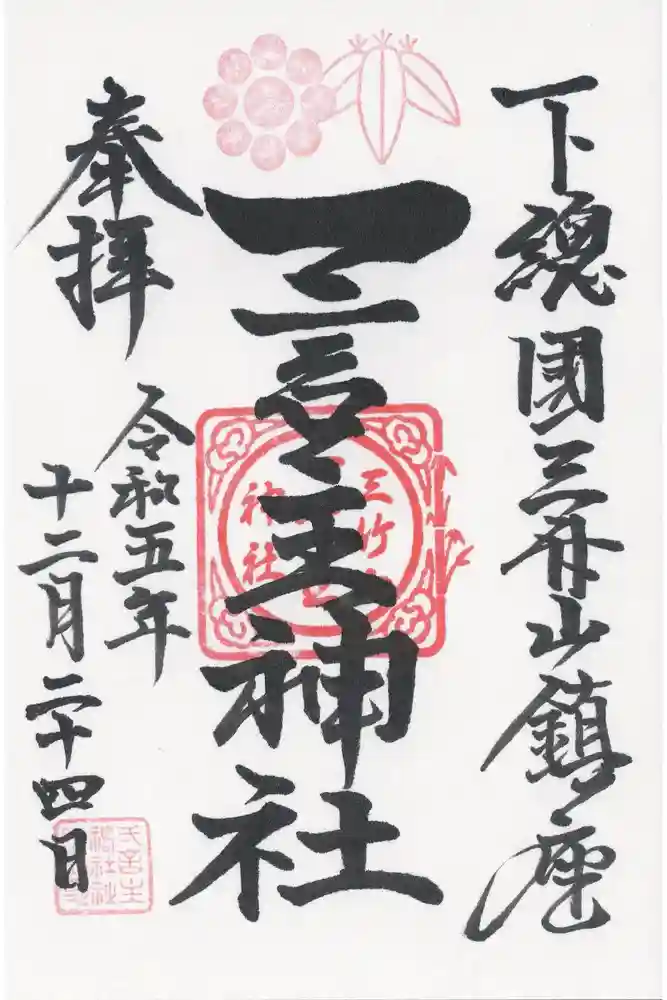 下總國三竹山鎮座
一言主神社
三竹
神社
奉拝
令和五年
十二月二十四日